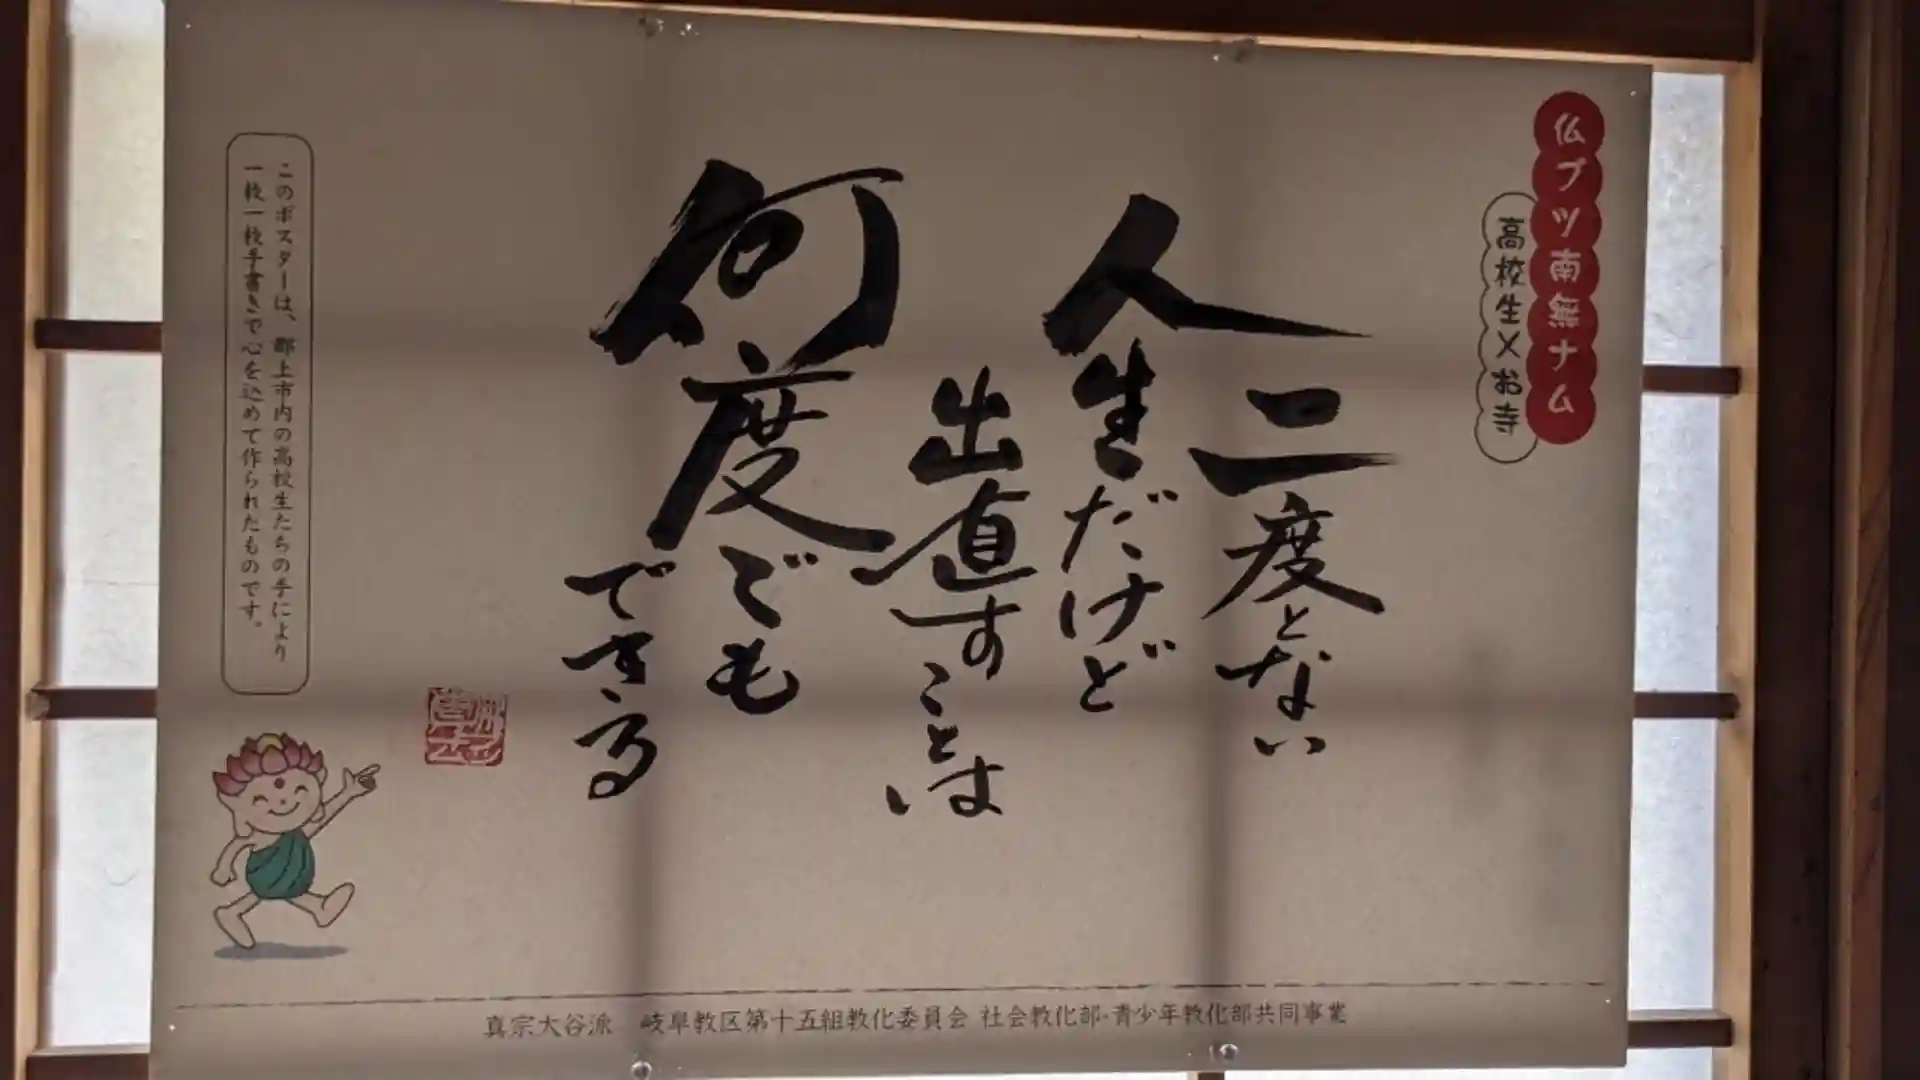 仏ブツ南無ナム
高校生×お寺
二度とない
人生だけど
出直すことは
何度でも
できる
このポスターは、郡上市内の高校生たちの手により
一枚一枚手書きで心を込めて作られたものです。
真宗大谷派 岐阜教区第十五組教化委員会 社会教化部・青少年教化部共同事業